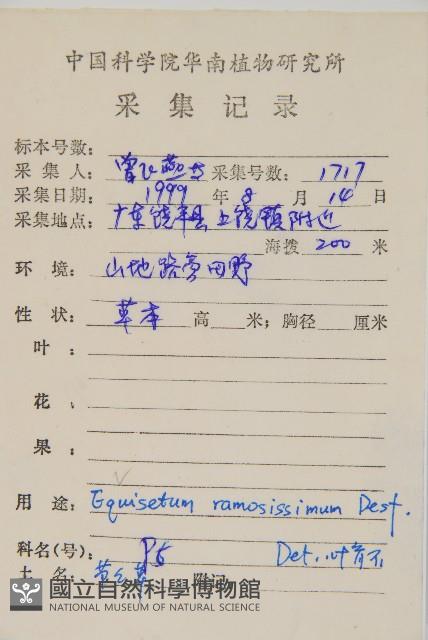 中国科学院华南植物研究所
采集记录
标本号数:
采集人: 曾飞燕 采集号数: 1717
采集日期: 1999 年 8 月 14 日
采集地点: 广东饶平县上饶镇附近
海拨 200 米
环境: 山地路旁田野
性状: 草本 高 米; 胸径 厘米
叶:
花:
果:
用途: Equisetum ramosissimum Desf.
科名(号): P6 Det. 叶育石
土名: 附记
國立自然科學博物館
NATIONAL MUSEUM OF NATURAL SCIENCE